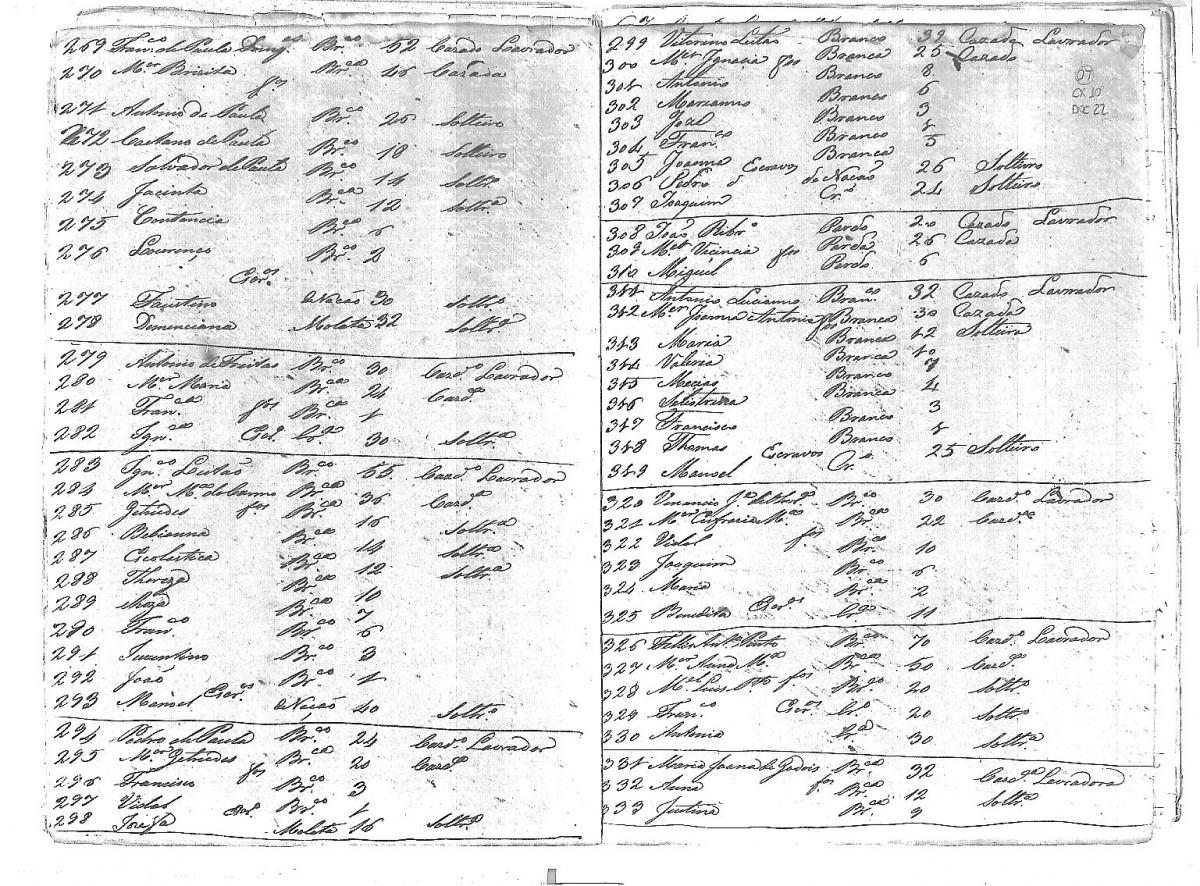 269 Fran.co de Paula Doming.s Br.co 52 Cazado Lavrador
270 M.er Brizita Br.ca 46 Cazada
fos
271 Antonio de Paula Br.co 26 Solteiro
272 Caetano de Paula Br.co 18 Solteiro
273 Salvador de Paula Br.co 14 Soltr.o
274 Jacinta Br.ca 12 Soltr.a
275 Br.ca 6
276 Lourenço Br.co 2
Escr.os
277 Faustino de Nação 30 Soltr.o
278 Molata 32 Soltr.a
279 Antonio de Freitas Br.co 30 Cazd.o Lavrador
280 M.er Maria Br.ca 24 Cazd.a
281 Fran.ca fos Br.ca 1
282 Ign.ca Cr.a 30 Soltr.a
283 Ign.co Leitaõ Br.co 55 Cazd.o Lavrador
284 M.er M.a do Carmo Br.ca 36 Cazd.a
285 Getrudes fos Br.ca 16 Soltr.a
286 Br.ca 14 Soltr.a
287 Escolastica Br.ca 12 Soltr.a
288 Thereza Br.ca 10
289 Br.ca 7
290 Fran.co Br.co 6
291 Br.co 3
292 João Br.co 1
293 Manoel Escr.os de Nação 40 Soltr.o
294 Pedro de Paula Br.co 24 Cazd.o Lavrador
295 M.er Getrudes Br.ca 20 Cazd.a
296 Francisco fos Br.co 3
297 Vidal Br.co 1
298 Molata 16 Soltr.a
299 Vitorino Leitaõ Branco 39 Cazado Lavrador
300 M.er Ignacia fos Branca 25 Cazado
301 Antonio Branco 8
302 Marianno Branco 6
303 Joze Branco 3
304 Fran.co Branco 1
305 Joanna Branca 5
306 Pedro Escravos de Nação 26 Solteiro
307 Joaquim Cr.o 24 Solteiro
308 Joaõ Ribr.o Pardo 20 Cazado Lavrador
309 M.er Vicencia fos Parda 26 Cazada
310 Miguel Pardo 6
311 Antonio Lucianno Bran.co 32 Cazado Lavrador
312 M.er Joanna Antonia fos Branca 30 Cazada
313 Maria Branca 12 Solteira
314 Valeria Branca 10
315 Branco 7
316 Branca 4
317 Francisco Branco 3
318 Thomas Branco 1
319 Manoel Escravos Cr.o 25 Solteiro
320 Venancio Br.co 30 Cazd.o Lavrador
321 M.er Eufrazia M.a Br.ca 22 Cazd.a
322 Vidal fos Br.co 10
323 Joaquim Br.co 6
324 Maria Br.ca 2
325 Benedita Escr.os Cr.a 11
326 Felis Ant.o Pinto Br.co 70 Cazd.o Lavrador
327 M.er Anna M.a Br.ca 50 Cazd.a
328 M.el Luis fos Br.co 20 Soltr.o
329 Fran.co Escr.os Cr.o 20 Soltr.o
330 Antonia Cr.a 30 Soltr.a
331 Maria Joana de Godois Br.ca 32 Cazd.a Lavradora
332 Anna fos Br.ca 12 Soltr.a
333 Justina Br.ca 9
07
CX 10
DOC 22